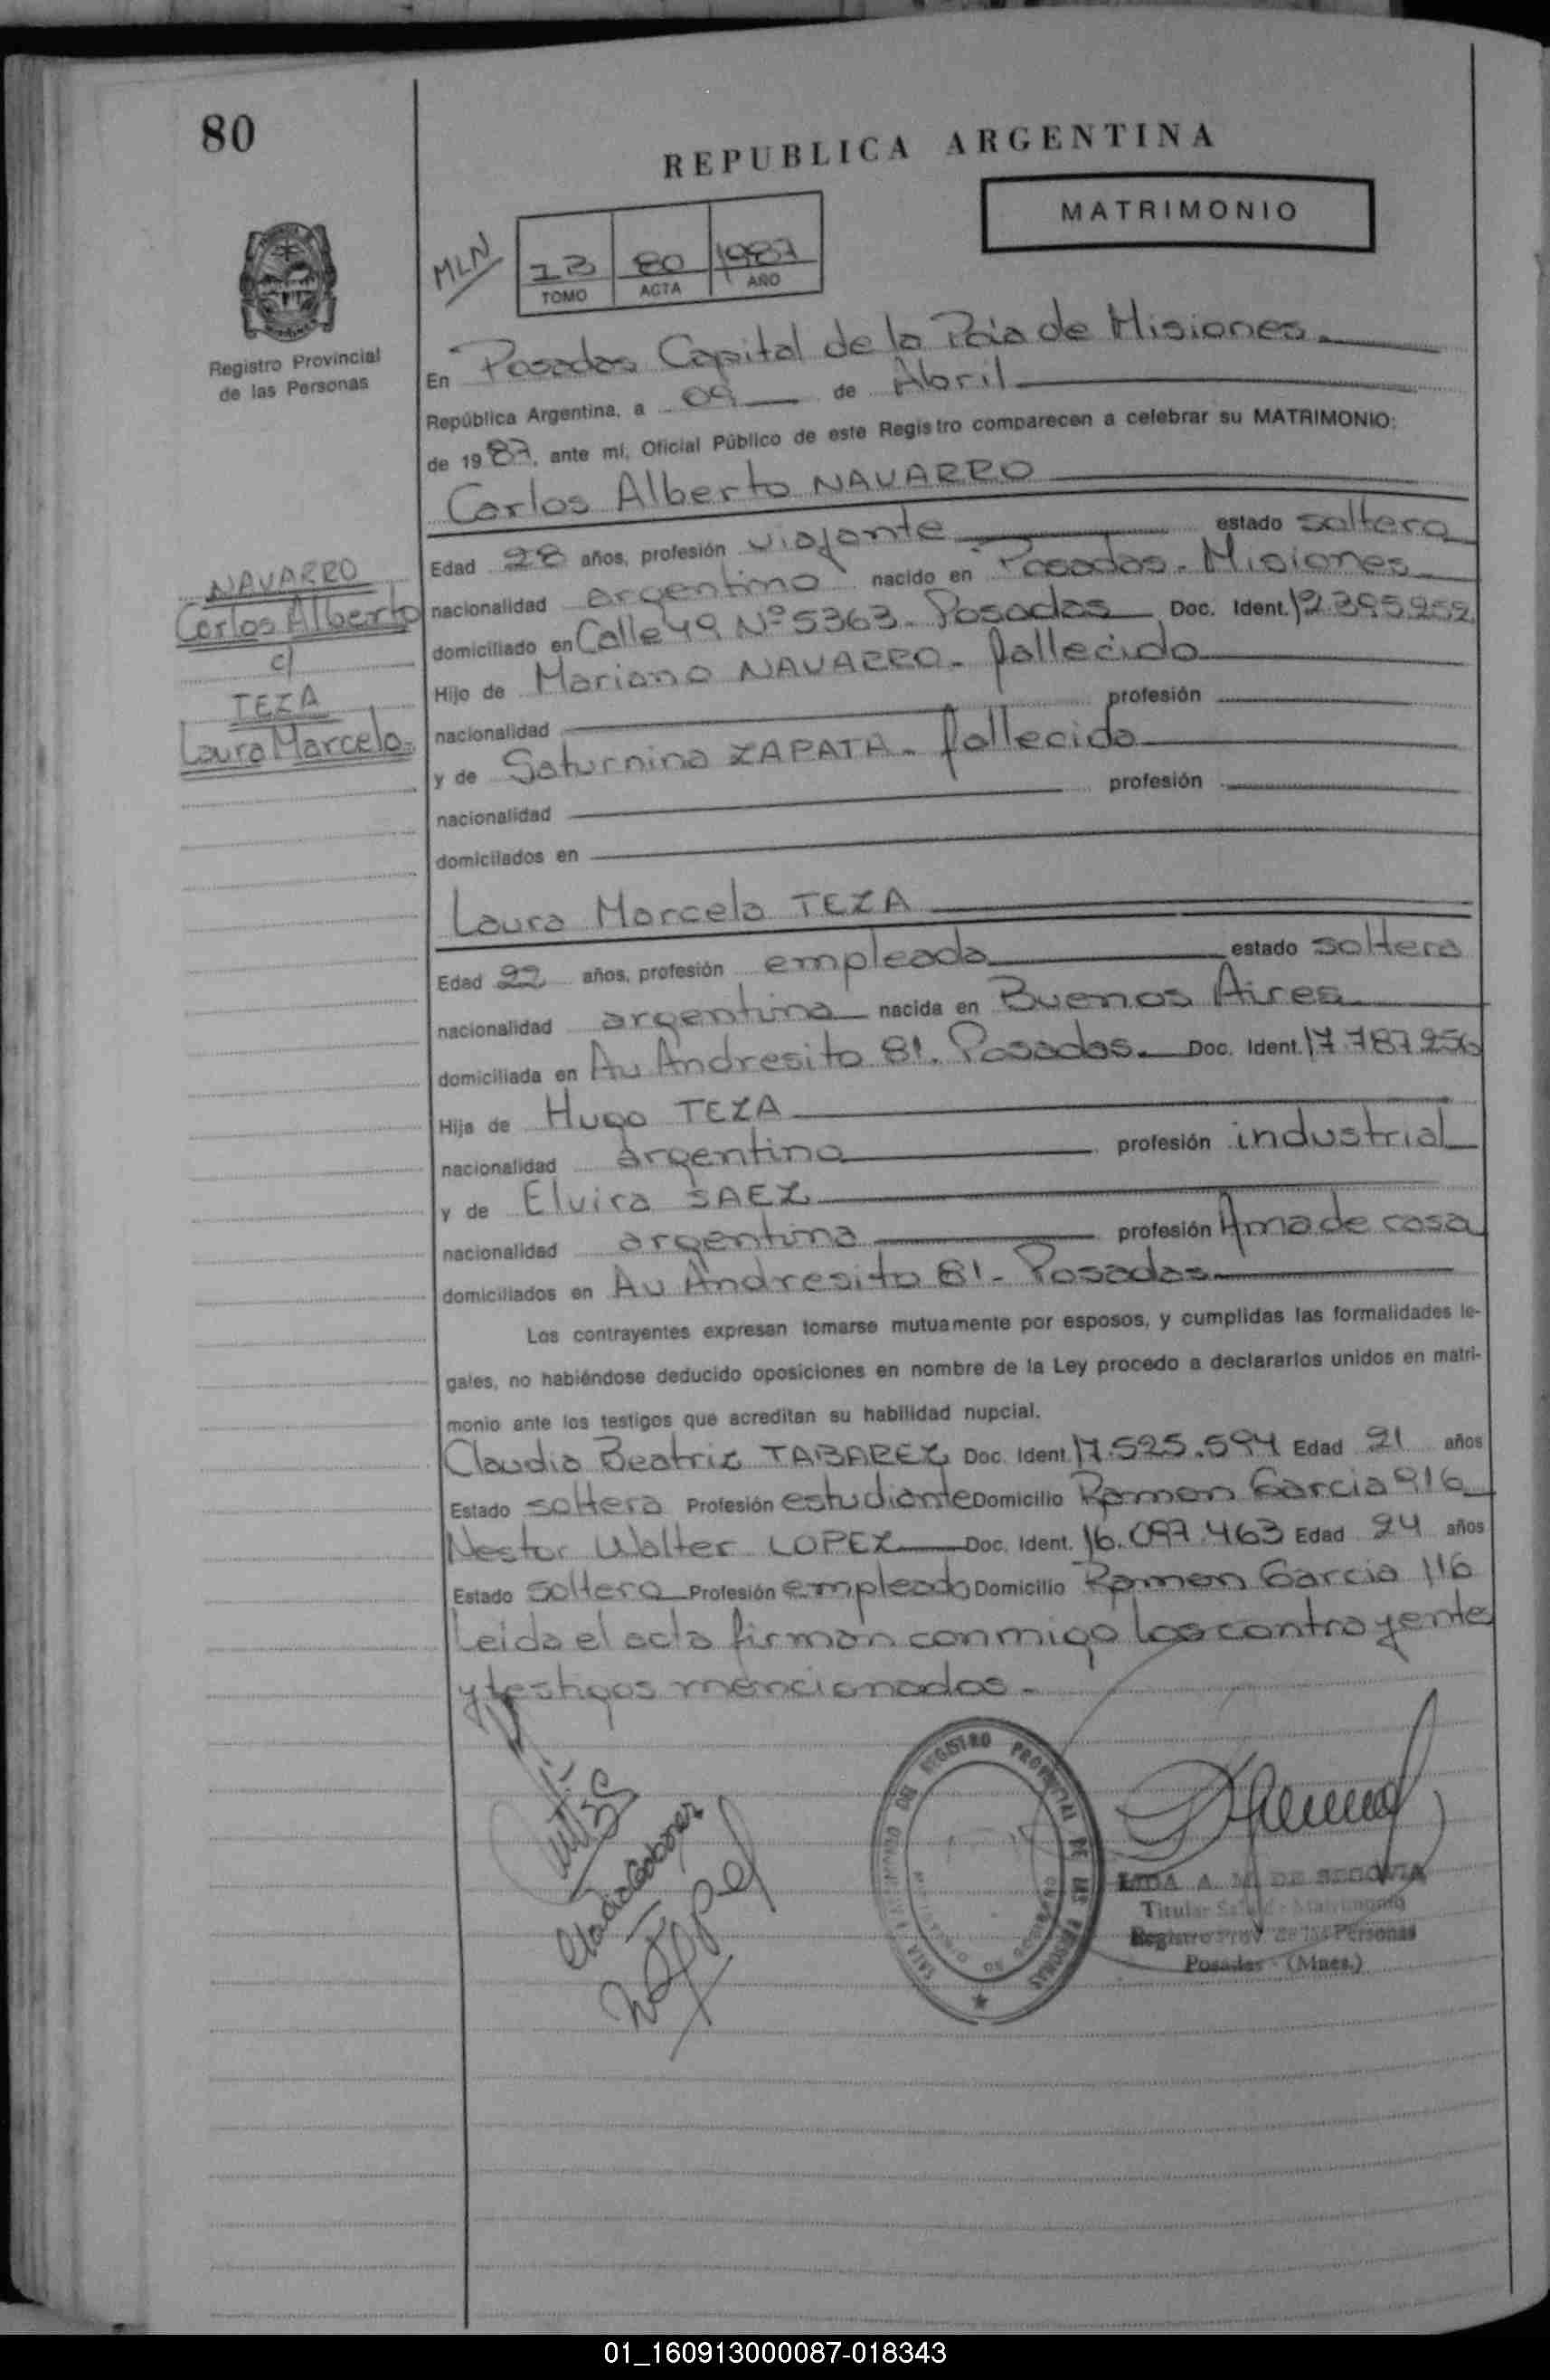 80
REPUBLICA ARGENTINA
MATRIMONIO
MLN
13 80 1987
TOMO ACTA AÑO
Registro Provincial
de las Personas
En Posadas Capital de la Pcia de Misiones.
República Argentina, a 09 de Abril
de 1987, ante mí, Oficial Público de este Registro comparecen a celebrar su MATRIMONIO:
Carlos Alberto NAVARRO
Edad 28 años, profesión viajante estado soltero
nacionalidad argentino nacido en Posadas. Misiones
domiciliado en Calle 49 Nº 5363. Posadas Doc. Ident. 12.395.252
Hijo de Mariano NAVARRO. fallecido
nacionalidad profesión
y de Saturnina ZAPATA. fallecida
nacionalidad profesión
domicilados en
NAVARRO
Carlos Alberto
c/
TEZA
Laura Marcela.
Laura Marcela TEZA
Edad 22 años, profesión empleada estado soltera
nacionalidad argentina nacida en Buenos Aires
domiciliada en Av Andresito 81. Posadas. Doc. Ident. 17.787.256
Hija de Hugo TEZA
nacionalidad argentino profesión industrial
y de Elvira SAEZ
nacionalidad argentina profesión Ama de casa
domiciliados en Av Andresito 81- Posadas
Los contrayentes expresan tomarse mutuamente por esposos, y cumplidas las formalidades le-
gales, no habiéndose deducido oposiciones en nombre de la Ley procedo a declararlos unidos en matri-
monio ante los testigos que acreditan su habilidad nupcial.
Claudia Beatriz TABAREZ Doc. Ident. 17.525.594 Edad 21 años
Estado soltera Profesión estudiante Domicilio Ramon Garcia 916
Nestor Walter LOPEZ Doc. Ident. 16.097.463 Edad 24 años
Estado soltero Profesión empleado Domicilio Ramon Garcia 116
Leida el acta firman conmigo los contrayentes
y testigos mencionados.
REGISTRO PROVINCIAL DE LAS PERSONAS
LIDA A. M. DE SEGOVIA
Titular Sala de Matrimonio
Registro Prov. de las Personas
Posadas - (Mnes.)
01_160913000087-018343